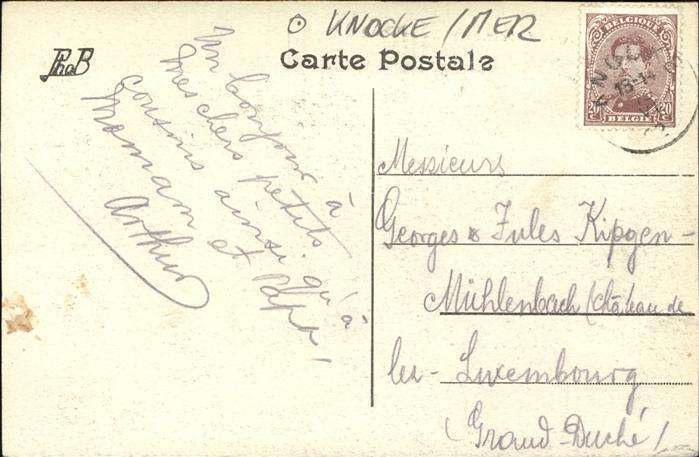 KNOCKE / MER
PhoB
Carte Postale
BELGIQUE
20 20
BELGIË
Un bonjour à
mes chers petits
cousins ainsi qu'à
Maman et Papa,
Arthur
Messieurs
Georges & Jules Kipgen-
Mühlenbach (château de
lez-Luxembourg
(Grand-Duché)